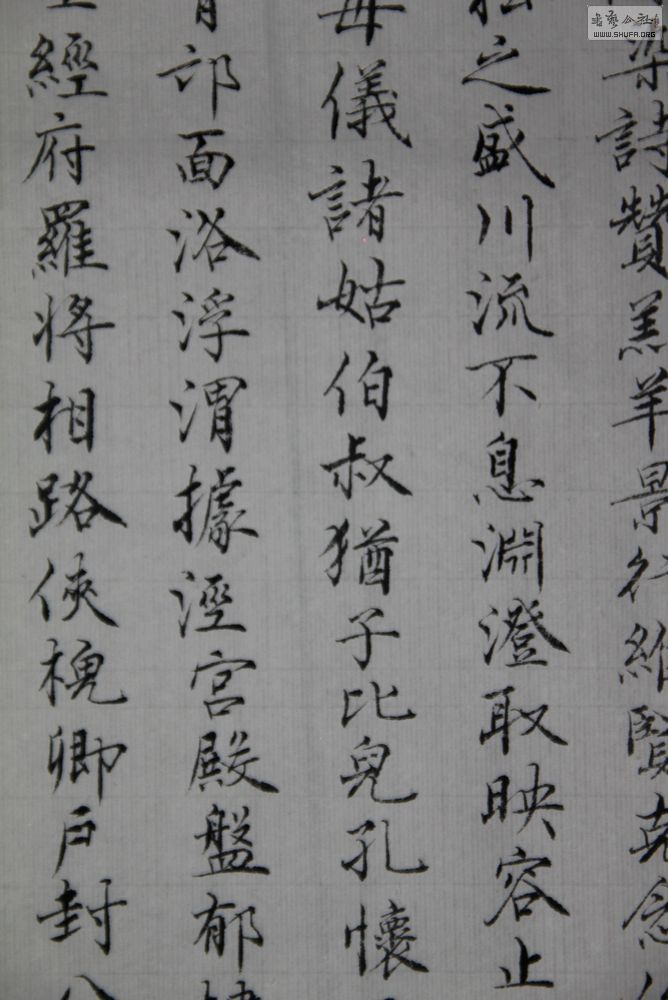 染詩贊羔羊景行維賢克念
之盛川流不息淵澄取映容止
母儀諸姑伯叔猶子比兒孔懷
背邙面洛浮渭據涇宮殿盤郁
經府羅將相路俠槐卿戶封八
书艺公社
WWW.SHUFA.ORG